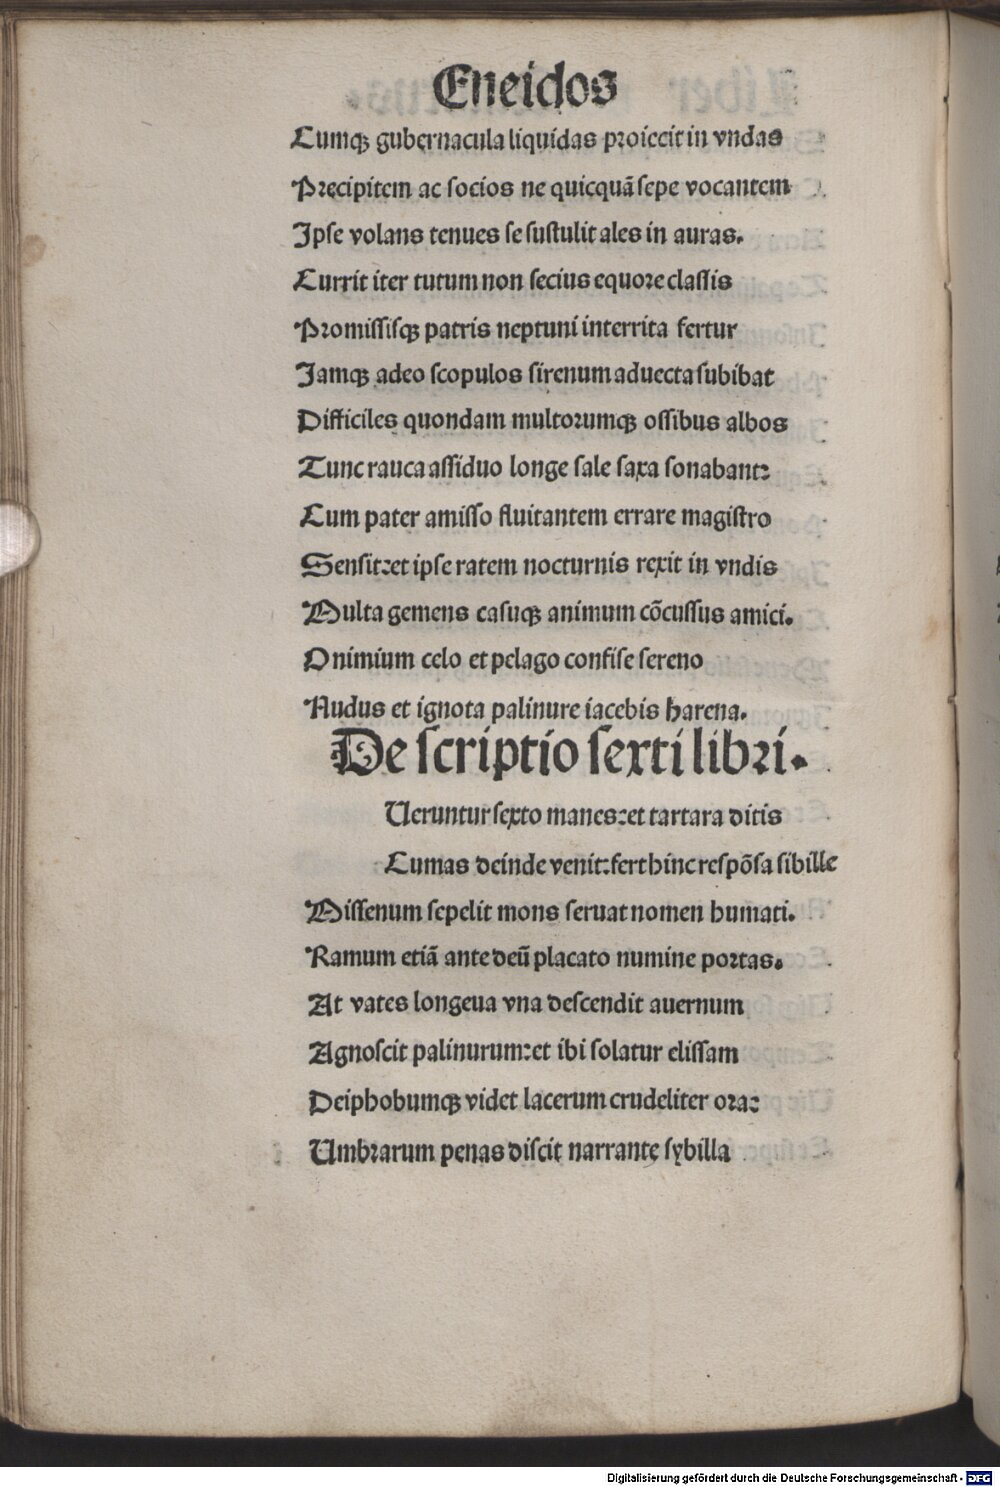 Eneidos
Cumqꝫ gubernacula liquidas proiecit in vndas
Pręcipitem ac socios ne quicquã sepe vocantem
Ipse volans tenues se sustulit ales in auras.
Currit iter tutum non secius equore classis
Promissisqꝫ patris neptuni interrita fertur
Iamqꝫ adeo scopulos sirenum aduecta subibat
Difficiles quondam multorumqꝫ ossibus albos
Tunc rauca assiduo longe sale saxa sonabant:
Cum pater amisso fluitantem errare magistro
Sensit:et ipse ratem nocturnis rexit in vndis
Multa gemens casuqꝫ animum cõcussus amici.
O nimium celo et pelago confise sereno
Nudus et ignota palinure iacebis harena.
De scriptio sexti libri.
Ueruntur sexto manes:et tartara ditis
Cumas deinde venit:fert hinc respõsa sibille
Missenum sepelit mons seruat nomen humati.
Ramum etiã ante deũ placato numine portas.
At vates longeua vna descendit auernum
Agnoscit palinurum:et ibi solatur elissam
Deiphobumqꝫ videt lacerum crudeliter ora:
Umbrarum penas discit narrantę sybilla
Digitalisierung gefördert durch die Deutsche Forschungsgemeinschaft - DFG